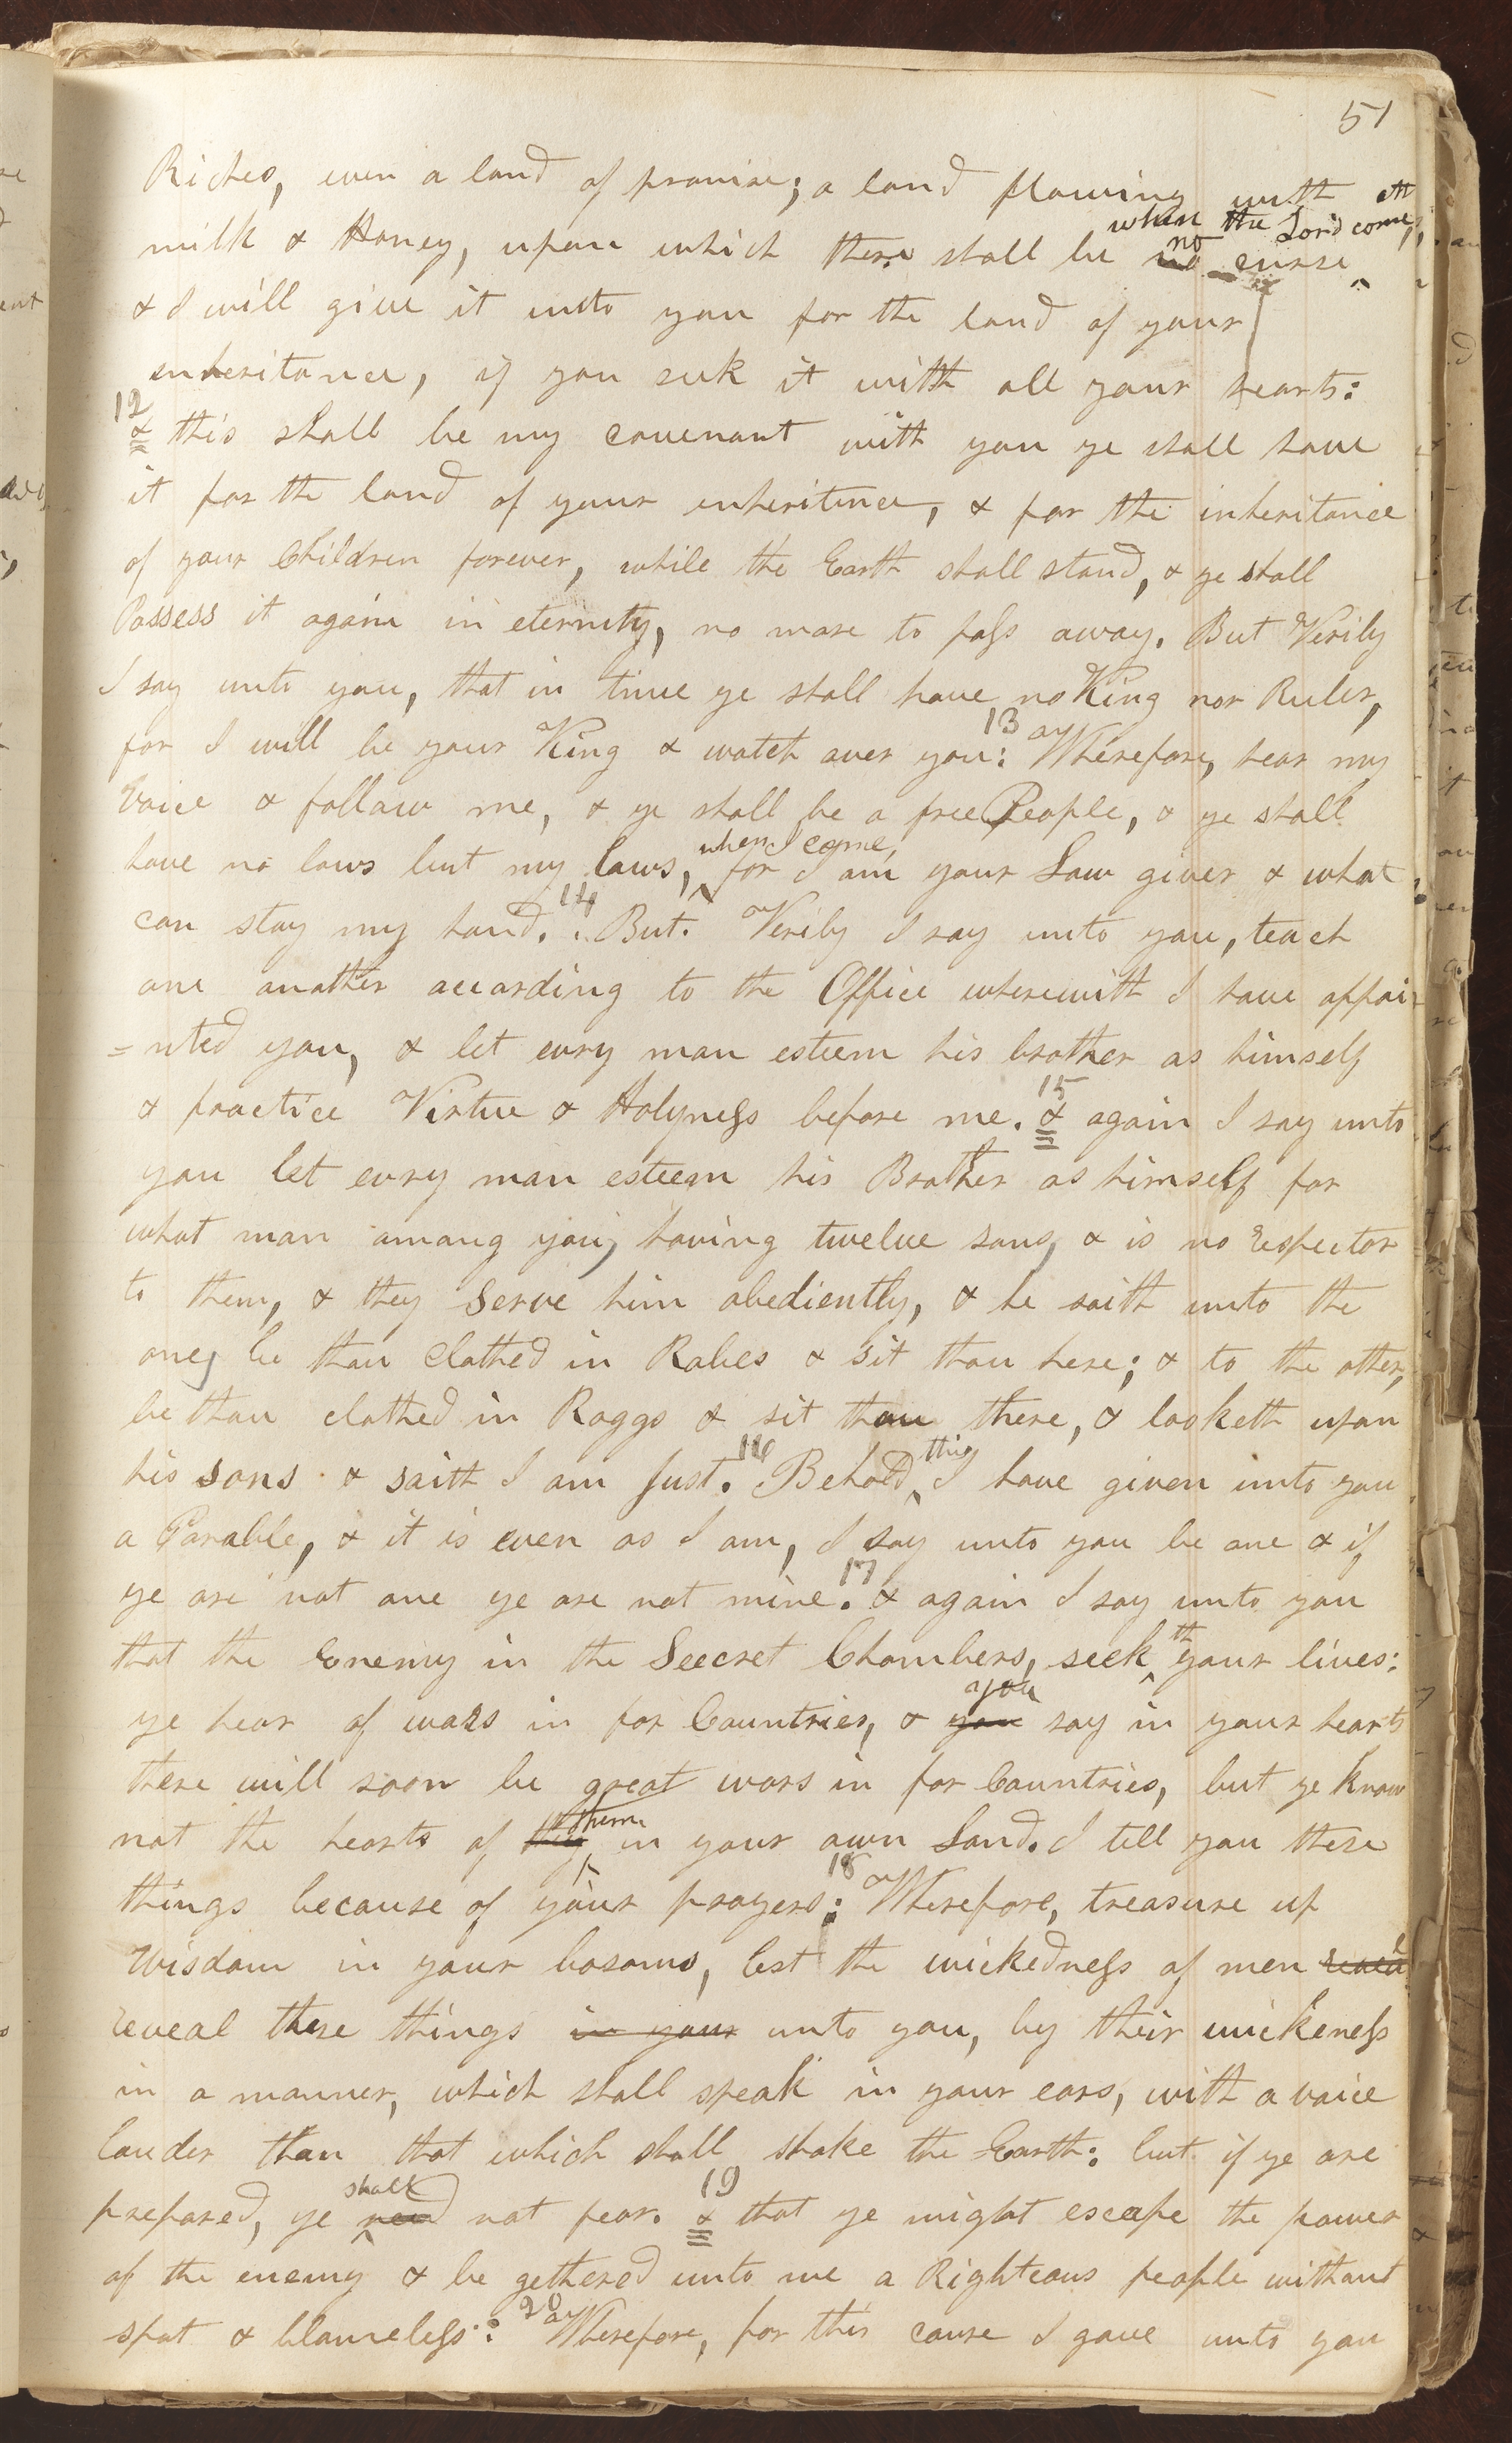 51
Riches, even a land of promise; a land flowing with
when the Lord come,
milk & Honey, upon which there shall be no no curse
& I will give it unto you for the land of your
inheritance, if you seek it with all your hearts:
12
& this shall be my covenant with you ye shall have
it for the land of your inheritence, & for the inheritance
of your Children forever, while the Earth shall stand, & ye shall
Possess it again in eternity, no more to pass away. But Verily
I say unto you, that in time ye shall have no King nor Ruler,
for I will be your King & watch over you: 13 Wherefore, hear my
Voice & follow me, & ye shall be a free People, & ye shall
when I come,
have no laws but my laws, for I am your Law giver & what
can stay my hand. 14 But. Verily I say unto you, teach
one another according to the Office wherewith I have appoi
=nted you, & let evry man esteem his brother as himself
& practice Virtue & Holyness before me. 15 & again I say unto
you let evry man esteem his Brother as himself for
what man among you, having twelve sons, & is no respector
to them, & they serve him obediently, & he saith unto the
one, be thou clothed in Robes & sit thou here; & to the other,
be thou clothed in Raggs & sit thou there, & looketh upon
his sons & saith I am Just. 16 Behold, this I have given unto you
a Parable, & it is even as I am, I say unto you be one & if
ye are not one ye are not mine. 17 & again I say unto you
that the Enemy in the Seecret Chambers, seek th your lives:
you
ye hear of wars in far Countries, & you say in your hearts
there will soon be great wars in far Countries, but ye know
them
not the hearts of in your own Land. I tell you these
things because of your prayers: 18 Wherefore, treasure up
Wisdom in your bosoms, lest the wickedness of men reveal
reveal these things in your unto you, by their wickeness
in a manner, which shall speak in your ears, with a voice
louder than that which shall shake the Earth: but if ye are
shall
prepared, ye need not fear. 19 & that ye might escape the power
of the enemy & be gethered unto me a Righteous people without
spot & blameless: 20 Wherefore, for this cause I gave unto you